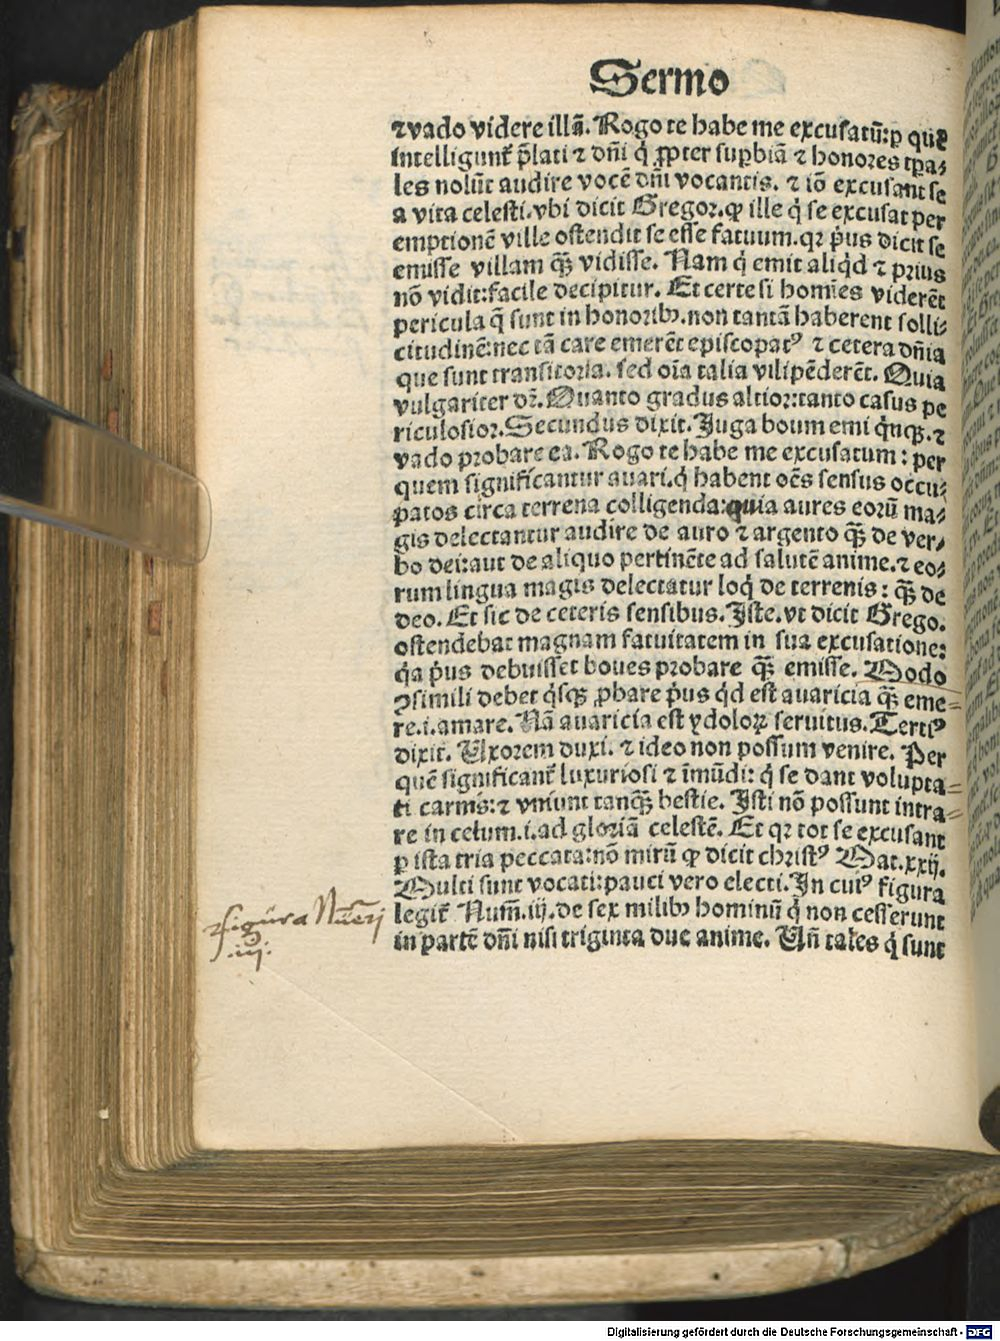 Sermo
⁊vado videre illã. Rogo te habe me excusatũ: ꝑ quẽ
intelligunt̃ p̃lati ⁊ dñi q̇ ꝓpter suꝑbiã ⁊ honores tꝑa⸗
les nolũt audire vocẽ dñi vocantis. ⁊ iõ excusant se
a vita celesti. vbi dicit Gregoꝛ. ꝙ ille q̇ se excusat per
emptionẽ ville ostendit se esse fatuum. qꝛ p̓us dicit se
emisse villam q̃ꝫ vidisse. Nam q̇ emit aliq̇d ⁊ prius
nõ vidit: facile decipitur. Et certe si homies viderẽt
pericula q̃ sunt in honoribꝰ. non tantã haberent solli⸗
citudinẽ: nec tã care emerẽt episcopatꝰ ⁊ cetera dñia
que sunt transitoria. sed oĩa talia vilipẽderẽt. Quia
vulgariter dꝛ̃. Quanto gradus altioꝛ: tanto casus pe
riculosioꝛ. Secundus dixit. Juga boum emi q̇nqꝫ. ⁊
vado probare ea. Rogo te habe me excusatum: per
quem significantur auari. q̇ habent oẽs sensus occu⸗
patos circa terrena colligenda: quia aures eorũ ma⸗
gis delectantur audire de auro ⁊ argento q̃ꝫ de ver⸗
bo dei: aut de aliquo pertinẽte ad salutẽ anime. ⁊ eo⸗
rum lingua magis delectatur loq̇ de terrenis: q̃ꝫ de
deo. Et sic de ceteris sensibus. Iste. vt dicit Grego.
ostendebat magnam fatuitatem in sua excusatione:
q̇a p̓us debuisset boues probare q̃ꝫ emisse. Modo
ꝯsimili debet q̇sqꝫ ꝓbare p̓us q̇d est auaricia q̃ꝫ eme⸗
re. i. amare. Nã auaricia est ydoloꝝ seruitus. Tertiꝰ
dixit. Uxorem duxi. ⁊ ideo non possum venire. Per
quẽ significant̃ luxuriosi ⁊ ĩmũdi: q̇ se dant volupta⸗
ti carnis: ⁊ viuunt tanq̃ꝫ bestie. Isti nõ possunt intra⸗
re in celum. i. ad gloriã celestẽ. Et qꝛ tot se excusant
ꝑ ista tria peccata: nõ mirũ ꝙ dicit christꝰ Mat. xxij.
Multi sunt vocati: pauci vero electi. In cuiꝰ figura
legit̃ Num̃. iij. de sex milibꝰ hominũ q̇ non cesserunt
in partẽ dñi nisi triginta due anime. Uñ tales q̇ sunt
figura Nũeri
.iij.
Digitalisierung gefördert durch die Deutsche Forschungsgemeinschaft - DFG